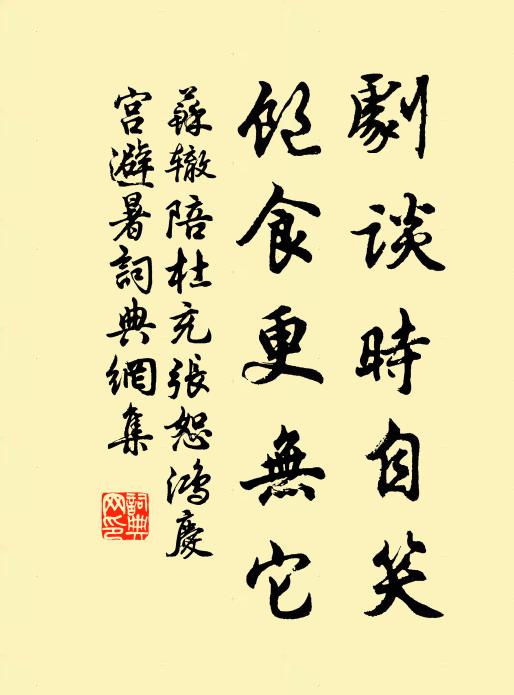 劇談時自笑
飽食更無它
蘇轍陪杜充張恕鴻慶
宮避暑詞典網集
詞典網印